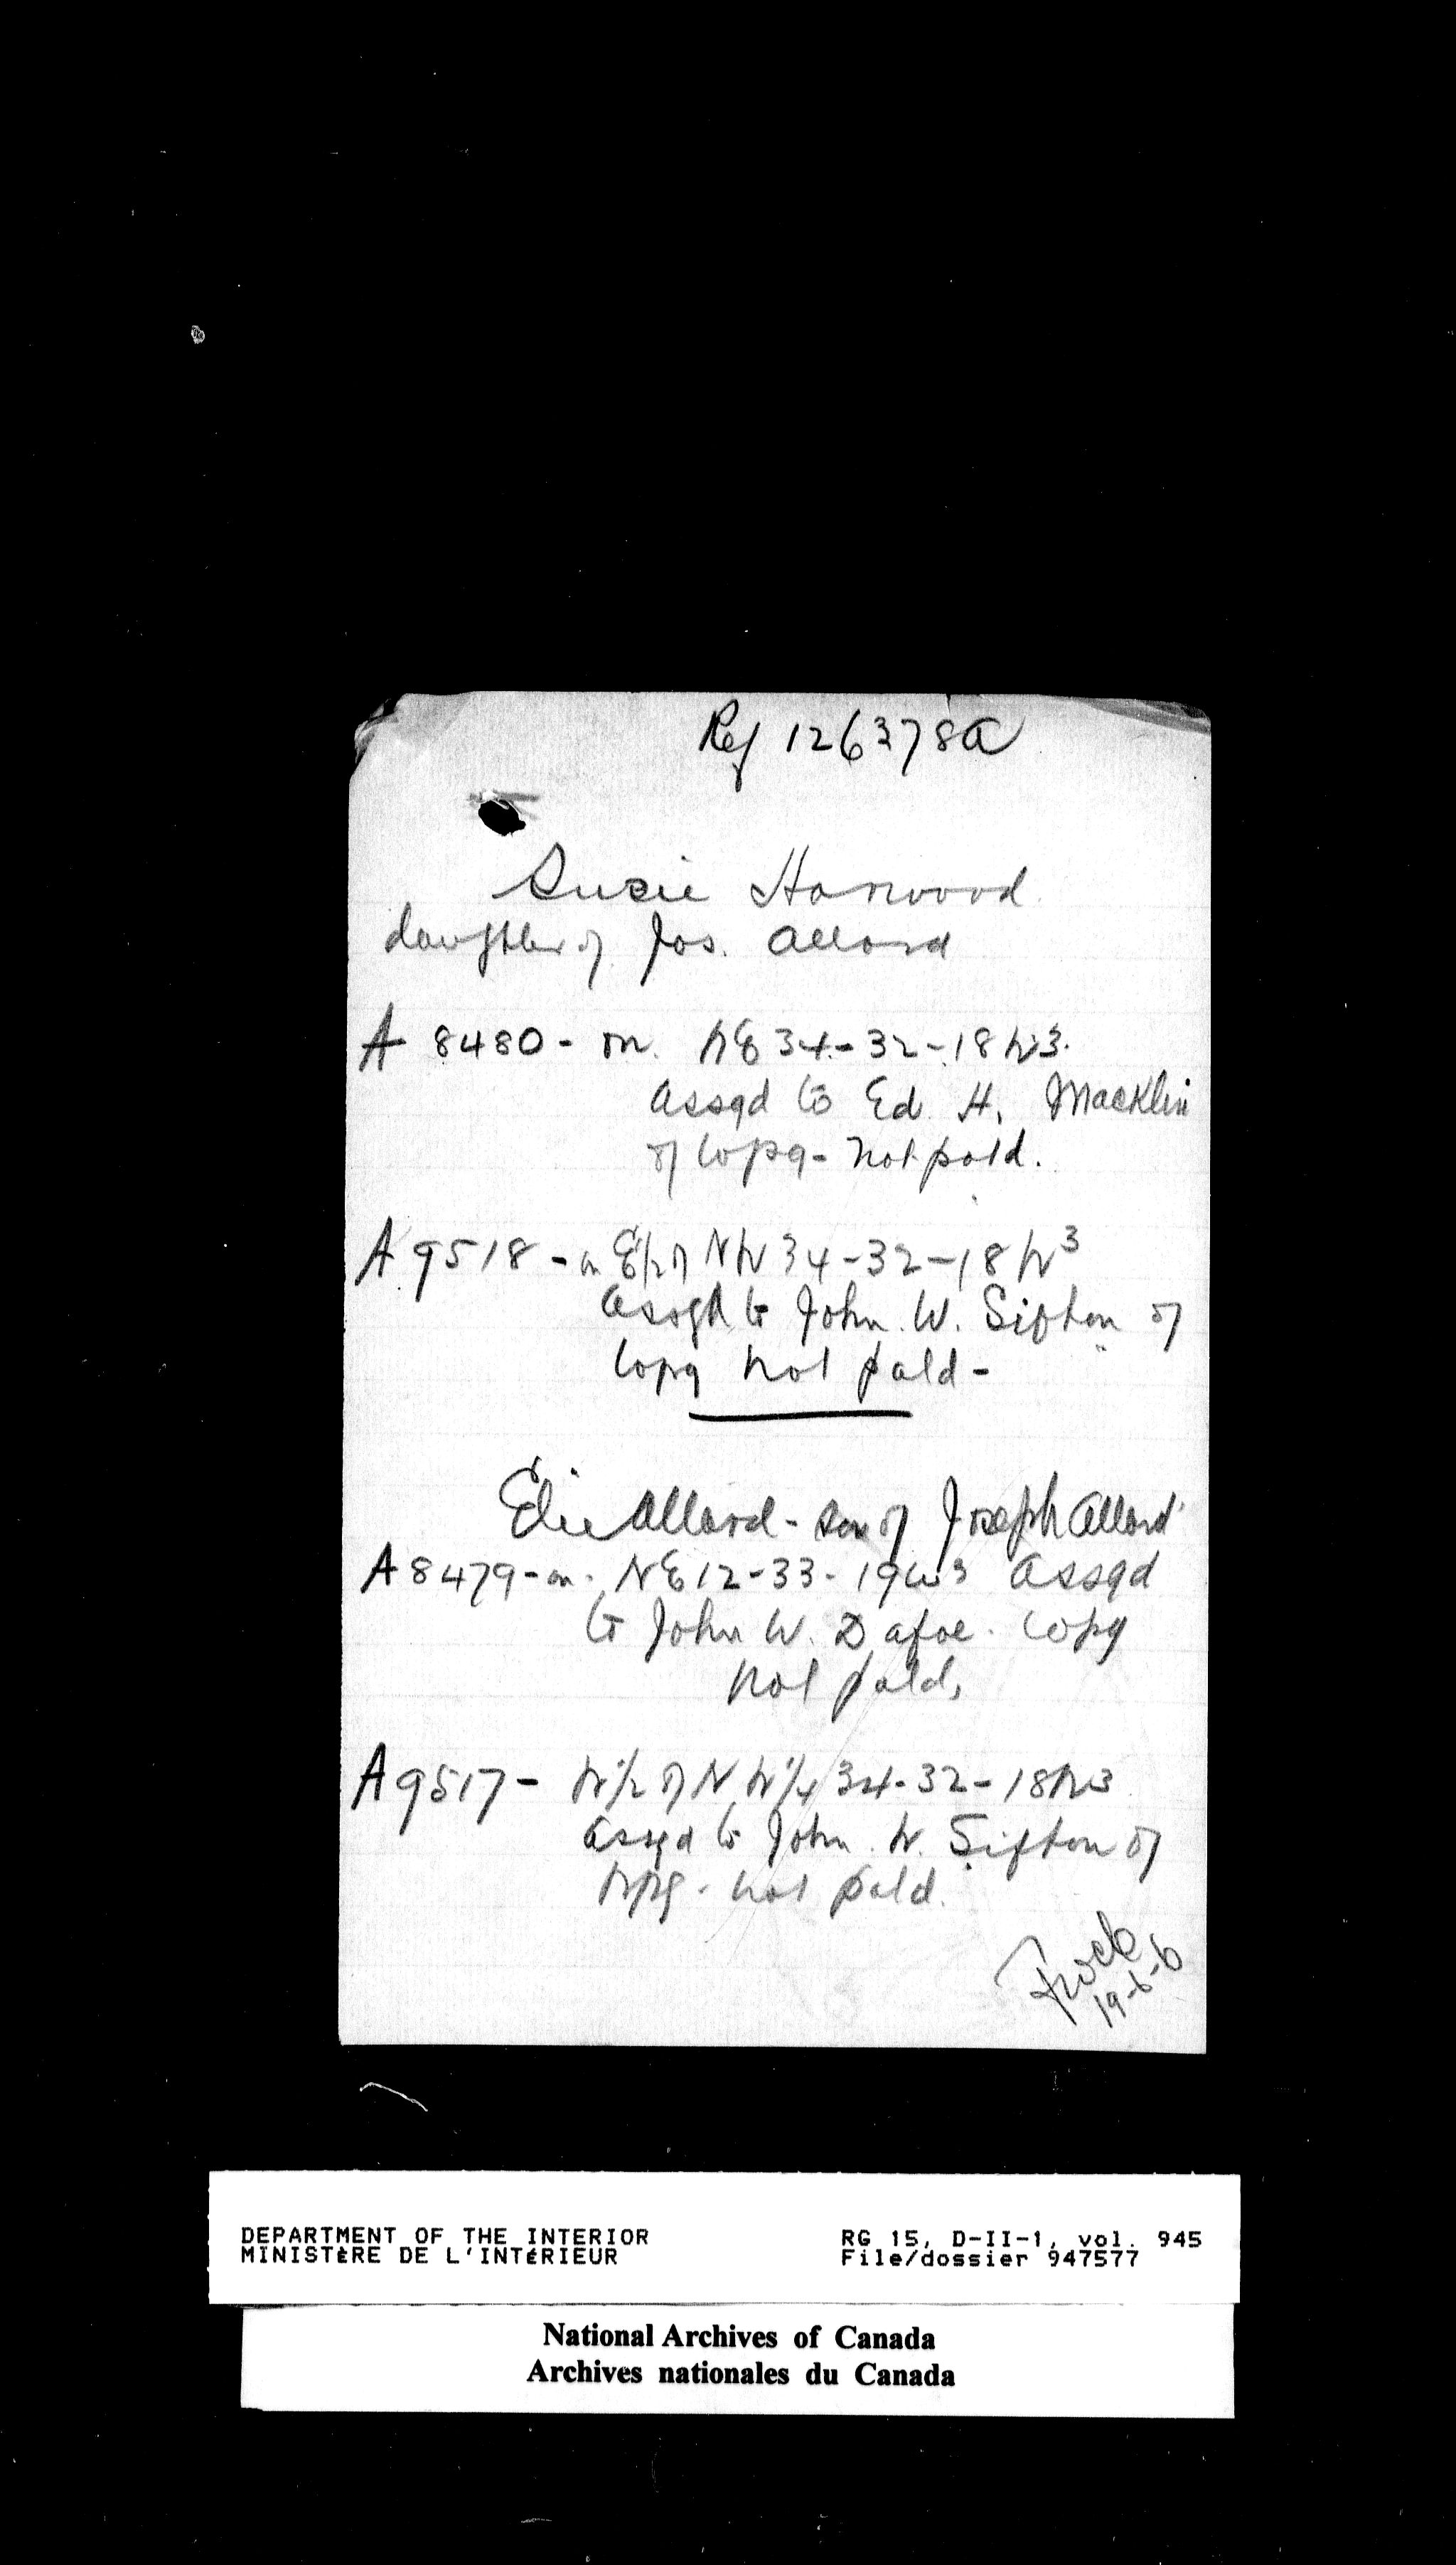 Ref 126378A
Susie Harwood
daughter of Jos. Allard
A 8480 - on. NE 34 - 32 - 18 W3.
Assgd to Ed. H. Macklin
of Wpg - Not patd.
A 9518 - on E/2 of NW 34 - 32 - 18 W3
Assgd to John. W. Sifton of
Wpg not patd -
Elie Allard - son of Joseph Allard
A 8479 - on. NE 12 - 33 - 19 W3 Assgd
to John W. Dafoe. Wpg
not patd,
A 9517 - W 1/2 of N W 1/4 34 - 32 - 18 W3
Assgd to John. W. Sifton of
Wpg. not patd.
19-6-6
DEPARTMENT OF THE INTERIOR
MINISTÈRE DE L'INTÉRIEUR
RG 15, D-II-1, vol. 945
File/dossier 947577
National Archives of Canada
Archives nationales du Canada